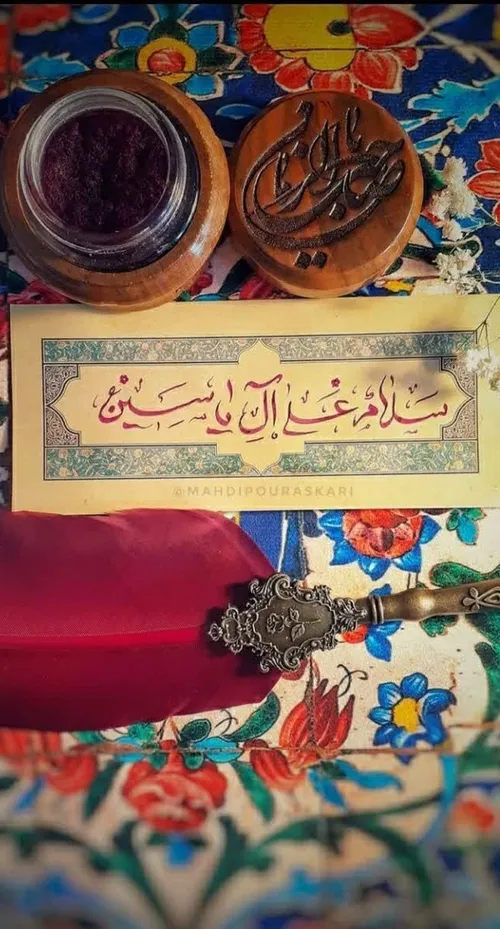 یا صاحب الزمان
سَلامٌ عَلىٰ آلِ یاسین
@MAHDIPOURASKARI